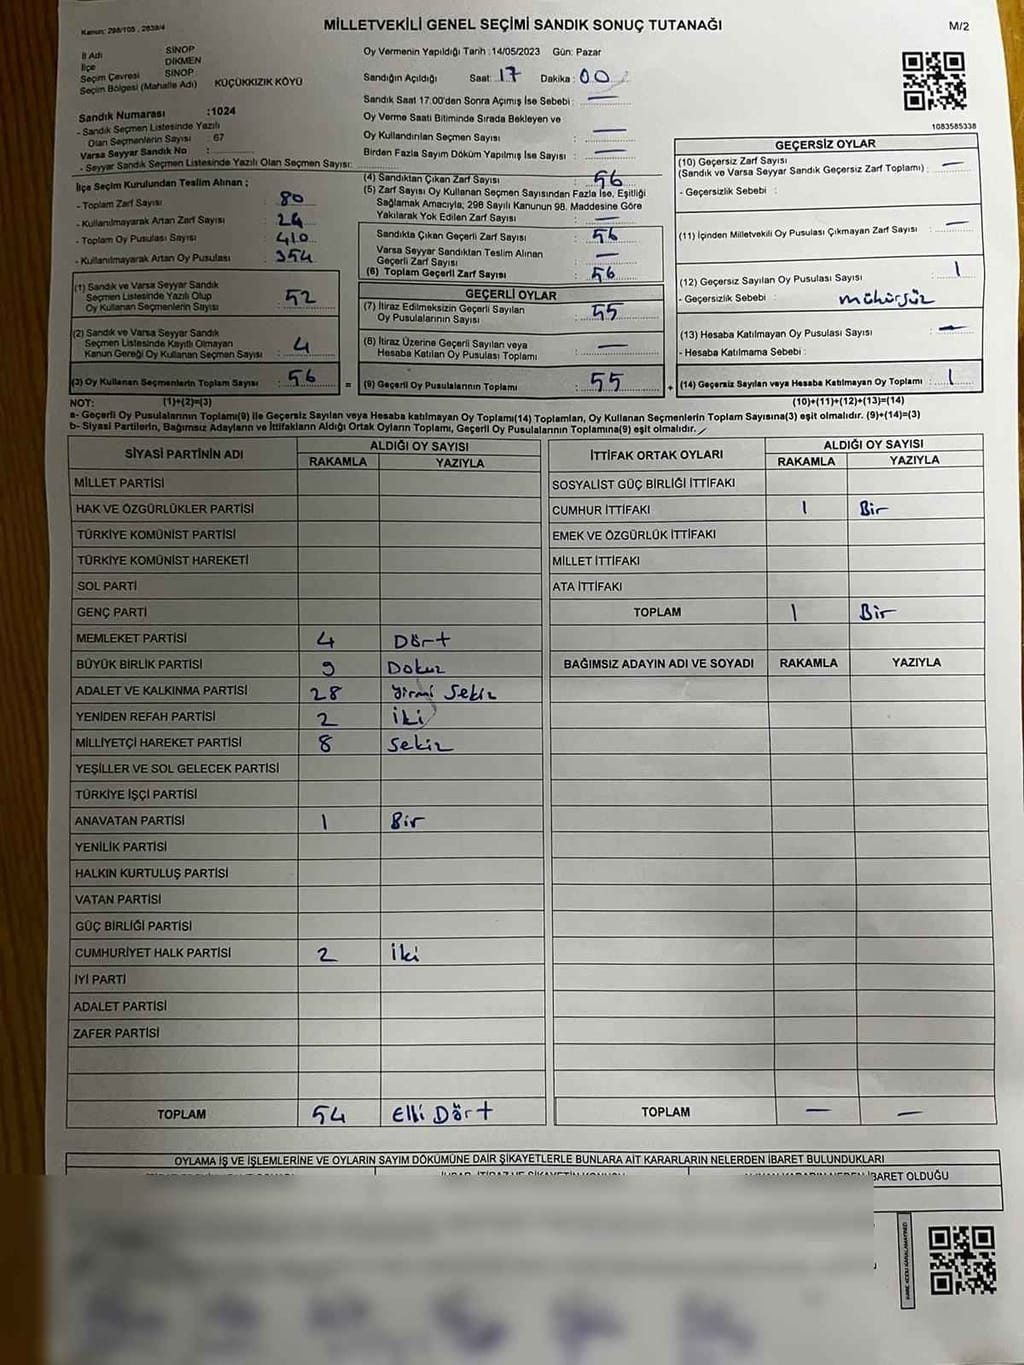 Kanun: 298/105 , 2839/4
MİLLETVEKİLİ GENEL SEÇİMİ SANDIK SONUÇ TUTANAĞI
M/2
İl Adı SİNOP
İlçe DİKMEN
Seçim Çevresi SİNOP
Seçim Bölgesi (Mahalle Adı) KÜÇÜKKIZIK KÖYÜ
Sandık Numarası :1024
- Sandık Seçmen Listesinde Yazılı
Olan Seçmenlerin Sayısı : 67
Varsa Seyyar Sandık No :
- Seyyar Sandık Seçmen Listesinde Yazılı Olan Seçmen Sayısı:
Oy Vermenin Yapıldığı Tarih :14/05/2023 Gün: Pazar
Sandığın Açıldığı Saat: 17 Dakika : 00
Sandık Saat 17:00'den Sonra Açımış İse Sebebi : —
Oy Verme Saati Bitiminde Sırada Bekleyen ve
Oy Kullandırılan Seçmen Sayısı : —
Birden Fazla Sayım Döküm Yapılmış İse Sayısı : —
1083585338
İlçe Seçim Kurulundan Teslim Alınan ;
- Toplam Zarf Sayısı : 80
- Kullanılmayarak Artan Zarf Sayısı : 24
- Toplam Oy Pusulası Sayısı : 410
- Kullanılmayarak Artan Oy Pusulası : 354
(1) Sandık ve Varsa Seyyar Sandık
Seçmen Listesinde Yazılı Olup
Oy Kullanan Seçmenlerin Sayısı : 52
(2) Sandık ve Varsa Seyyar Sandık
Seçmen Listesinde Kayıtlı Olmayan
Kanun Gereği Oy Kullanan Seçmen Sayısı : 4
(3) Oy Kullanan Seçmenlerin Toplam Sayısı : 56 =
(4) Sandıktan Çıkan Zarf Sayısı : 56
(5) Zarf Sayısı Oy Kullanan Seçmen Sayısından Fazla İse, Eşitliği
Sağlamak Amacıyla, 298 Sayılı Kanunun 98. Maddesine Göre
Yakılarak Yok Edilen Zarf Sayısı : —
Sandıkta Çıkan Geçerli Zarf Sayısı : 56
Varsa Seyyar Sandıktan Teslim Alınan
Geçerli Zarf Sayısı : —
(6) Toplam Geçerli Zarf Sayısı : 56
GEÇERLİ OYLAR
(7) İtiraz Edilmeksizin Geçerli Sayılan
Oy Pusulalarının Sayısı : 55
(8) İtiraz Üzerine Geçerli Sayılan veya
Hesaba Katılan Oy Pusulası Toplamı : —
(9) Geçerli Oy Pusulalarının Toplamı : 55 +
GEÇERSİZ OYLAR
(10) Geçersiz Zarf Sayısı
(Sandık ve Varsa Seyyar Sandık Geçersiz Zarf Toplamı) : —
- Geçersizlik Sebebi :
(11) İçinden Milletvekili Oy Pusulası Çıkmayan Zarf Sayısı : —
(12) Geçersiz Sayılan Oy Pusulası Sayısı : 1
- Geçersizlik Sebebi : mühürsüz
(13) Hesaba Katılmayan Oy Pusulası Sayısı : —
- Hesaba Katılmama Sebebi :
(14) Geçersiz Sayılan veya Hesaba Katılmayan Oy Toplamı : 1
NOT: (1)+(2)=(3)
(10)+(11)+(12)+(13)=(14)
a- Geçerli Oy Pusulalarının Toplamı(9) ile Geçersiz Sayılan veya Hesaba katılmayan Oy Toplamı(14) Toplamları, Oy Kullanan Seçmenlerin Toplam Sayısına(3) eşit olmalıdır. (9)+(14)=(3)
b- Siyasi Partilerin, Bağımsız Adayların ve İttifakların Aldığı Ortak Oyların Toplamı, Geçerli Oy Pusulalarının Toplamına(9) eşit olmalıdır.
SİYASİ PARTİNİN ADI ALDIĞI OY SAYISI
RAKAMLA YAZIYLA
MİLLET PARTİSİ
HAK VE ÖZGÜRLÜKLER PARTİSİ
TÜRKİYE KOMÜNİST PARTİSİ
TÜRKİYE KOMÜNİST HAREKETİ
SOL PARTİ
GENÇ PARTİ
MEMLEKET PARTİSİ 4 Dört
BÜYÜK BİRLİK PARTİSİ 9 Dokuz
ADALET VE KALKINMA PARTİSİ 28 Yirmi Sekiz
YENİDEN REFAH PARTİSİ 2 İki
MİLLİYETÇİ HAREKET PARTİSİ 8 Sekiz
YEŞİLLER VE SOL GELECEK PARTİSİ
TÜRKİYE İŞÇİ PARTİSİ
ANAVATAN PARTİSİ 1 Bir
YENİLİK PARTİSİ
HALKIN KURTULUŞ PARTİSİ
VATAN PARTİSİ
GÜÇ BİRLİĞİ PARTİSİ
CUMHURİYET HALK PARTİSİ 2 İki
İYİ PARTİ
ADALET PARTİSİ
ZAFER PARTİSİ
TOPLAM 54 Elli Dört
İTTİFAK ORTAK OYLARI ALDIĞI OY SAYISI
RAKAMLA YAZIYLA
SOSYALİST GÜÇ BİRLİĞİ İTTİFAKI
CUMHUR İTTİFAKI 1 Bir
EMEK VE ÖZGÜRLÜK İTTİFAKI
MİLLET İTTİFAKI
ATA İTTİFAKI
TOPLAM 1 Bir
BAĞIMSIZ ADAYIN ADI VE SOYADI RAKAMLA YAZIYLA
TOPLAM — —
OYLAMA İŞ VE İŞLEMLERİNE VE OYLARIN SAYIM DÖKÜMÜNE DAİR ŞİKAYETLERLE BUNLARA AİT KARARLARIN NELERDEN İBARET BULUNDUKLARI
İBARET OLDUĞU